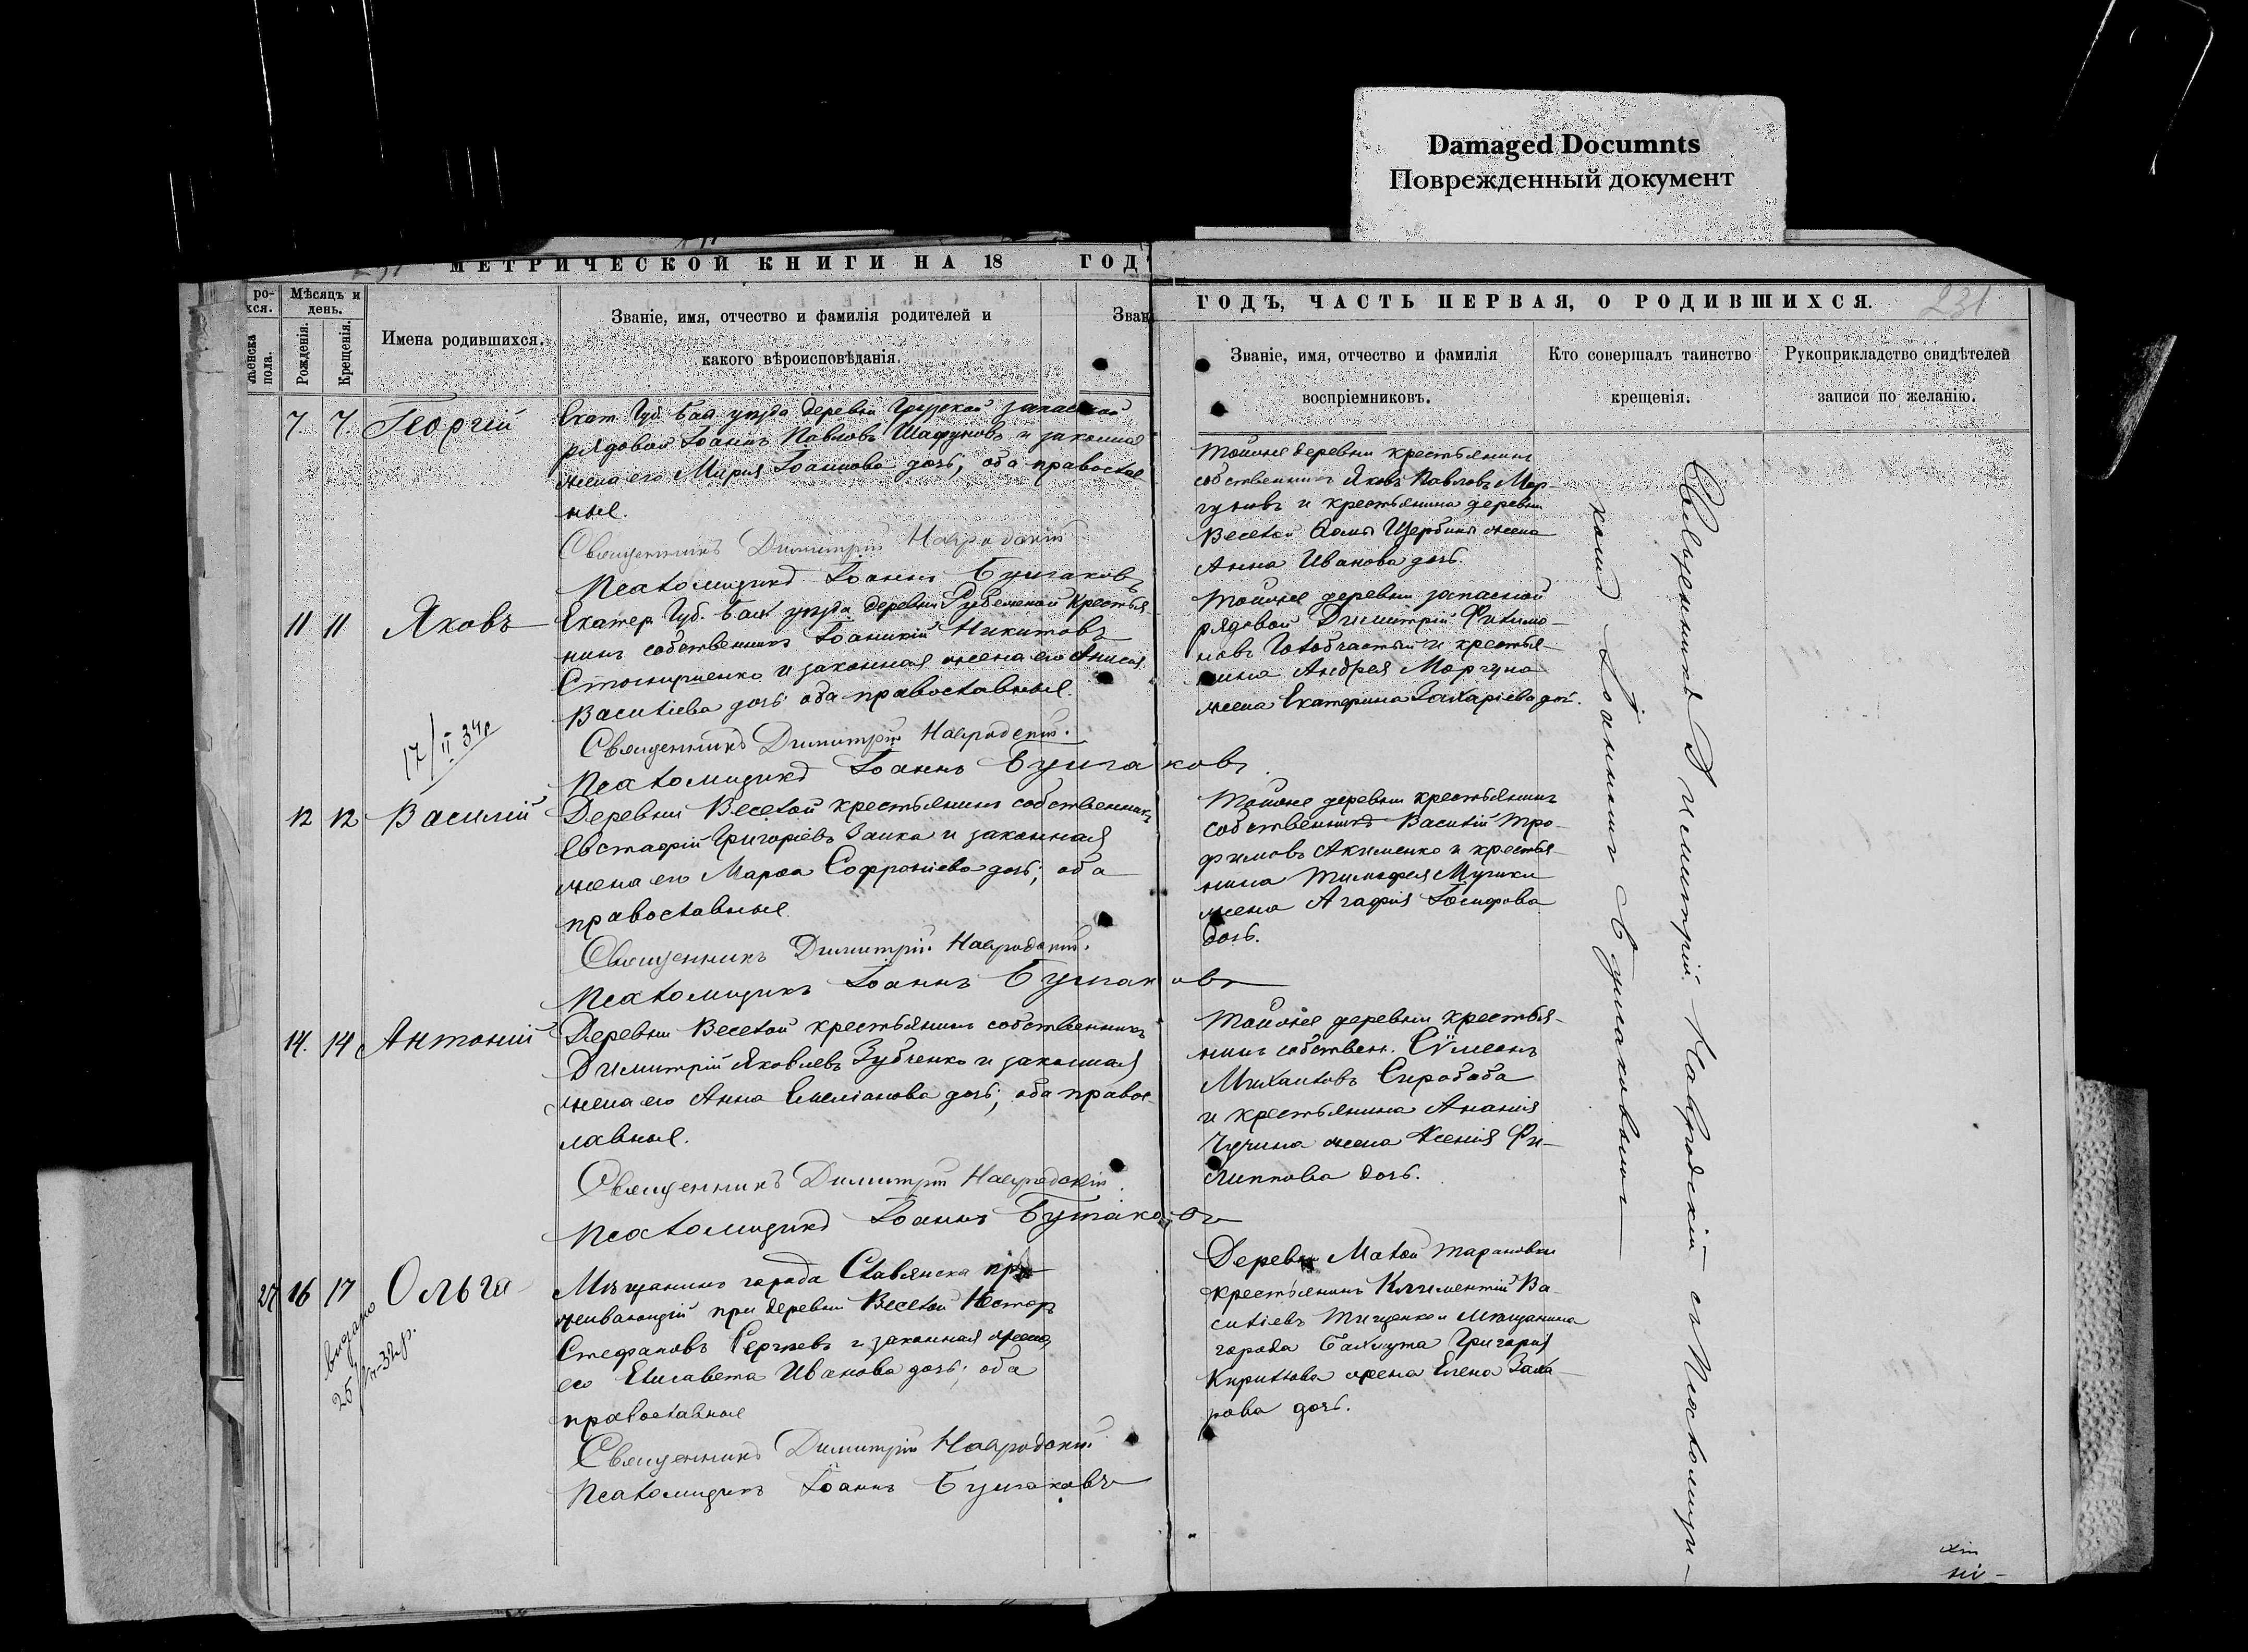 Damaged Documnts
Поврежденный документ
МЕТРИЧЕСКОЙ КНИГИ НА 18 ГОД
ро-
хся.
Мѣсяцъ и
день.
женска
пола.
Рожденія.
Крещенія.
Имена родившихся.
Званіе, имя, отчество и фамилія родителей и
какого вѣроисповѣданія.
Зван
ГОДЪ, ЧАСТЬ ПЕРВАЯ, О РОДИВШИХСЯ.
231
Званіе, имя, отчество и фамилія
воспріемниковъ.
Кто совершалъ таинство
крещенія.
Рукоприкладство свидѣтелей
записи по желанію.
7. 7. Георгій
Екат. Губ. Бах. уѣзда деревни запасной
рядовой Іоаннъ Павловъ и законная
жена его Марія Іоаннова дочь, оба православ
ные.
Священникъ Димитрій Навродскій
Псаломщикъ Іоаннъ Бушаковъ
Тойже деревни крестьянинъ
собственникъ Яковъ Павловъ Мор-
гуновъ и крестьянина деревни
Веселой Ѳомы Щербины жена
Анна Иванова дочь.
11 11 Яковъ
Екатер. Губ. Бах. уѣзда деревни Рубежной крестья-
нинъ собственникъ Іоаникій Никитовъ
и законная жена его Анисія
Василіева дочь; оба православные.
17/II 34 р
Священникъ Димитрій Навродскій.
Псаломщикъ Іоаннъ Бушаковъ.
Тойже деревни запасной
рядовой Димитрій Филимо-
новъ и крестья-
нина Андрея Моргуна
жена Екатерина Захаріева доч.
12 12 Василій
Деревни Веселой крестьянинъ собственникъ
Евстафій Григоріевъ Заика и законная
жена его Марѳа Софроніева дочь; оба
православные.
Священникъ Димитрій Навродскій.
Псаломщикъ Іоаннъ Бушаковъ
Тойже деревни крестьянинъ
собственникъ Василій Тро-
фимовъ Акименко и крестья-
нина Тимофея
жена Агафія Іосифова
дочь.
14. 14 Антоній
Деревни Веселой крестьянинъ собственникъ
Димитрій Яковлевъ Зубченко и законная
жена его Анна Емеліанова дочь; оба правос-
лавные.
Священникъ Димитрій Навродскій.
Псаломщикъ Іоаннъ Бушаковъ
Тойже деревни крестья-
нинъ собствен. Сѵмеонъ
Михаиловъ Скробоба
и крестьянина Ананія
Чучина жена Ксенія Фи-
липпова дочь.
27 16 17 Ольга
выдано
25
32 р.
Мѣщанинъ города Славянска про
живающій при деревни Веселой Несторъ
Стефановъ Сергѣевъ и законная жена
его Елисавета Иванова дочь; оба
православные
Священникъ Димитрій Навродскій
Псаломщикъ Іоаннъ Бушаковъ
Деревни Малой Тарановки
крестьянинъ Климентій Ва-
силіевъ Тищенко и мѣщанина
города Бахмута Григорія
Кирилова жена Елена Заха
рова дочь.
Священникъ Димитрій Навродскій съ Псаломщи-
комъ Іоанномъ Бушаковымъ